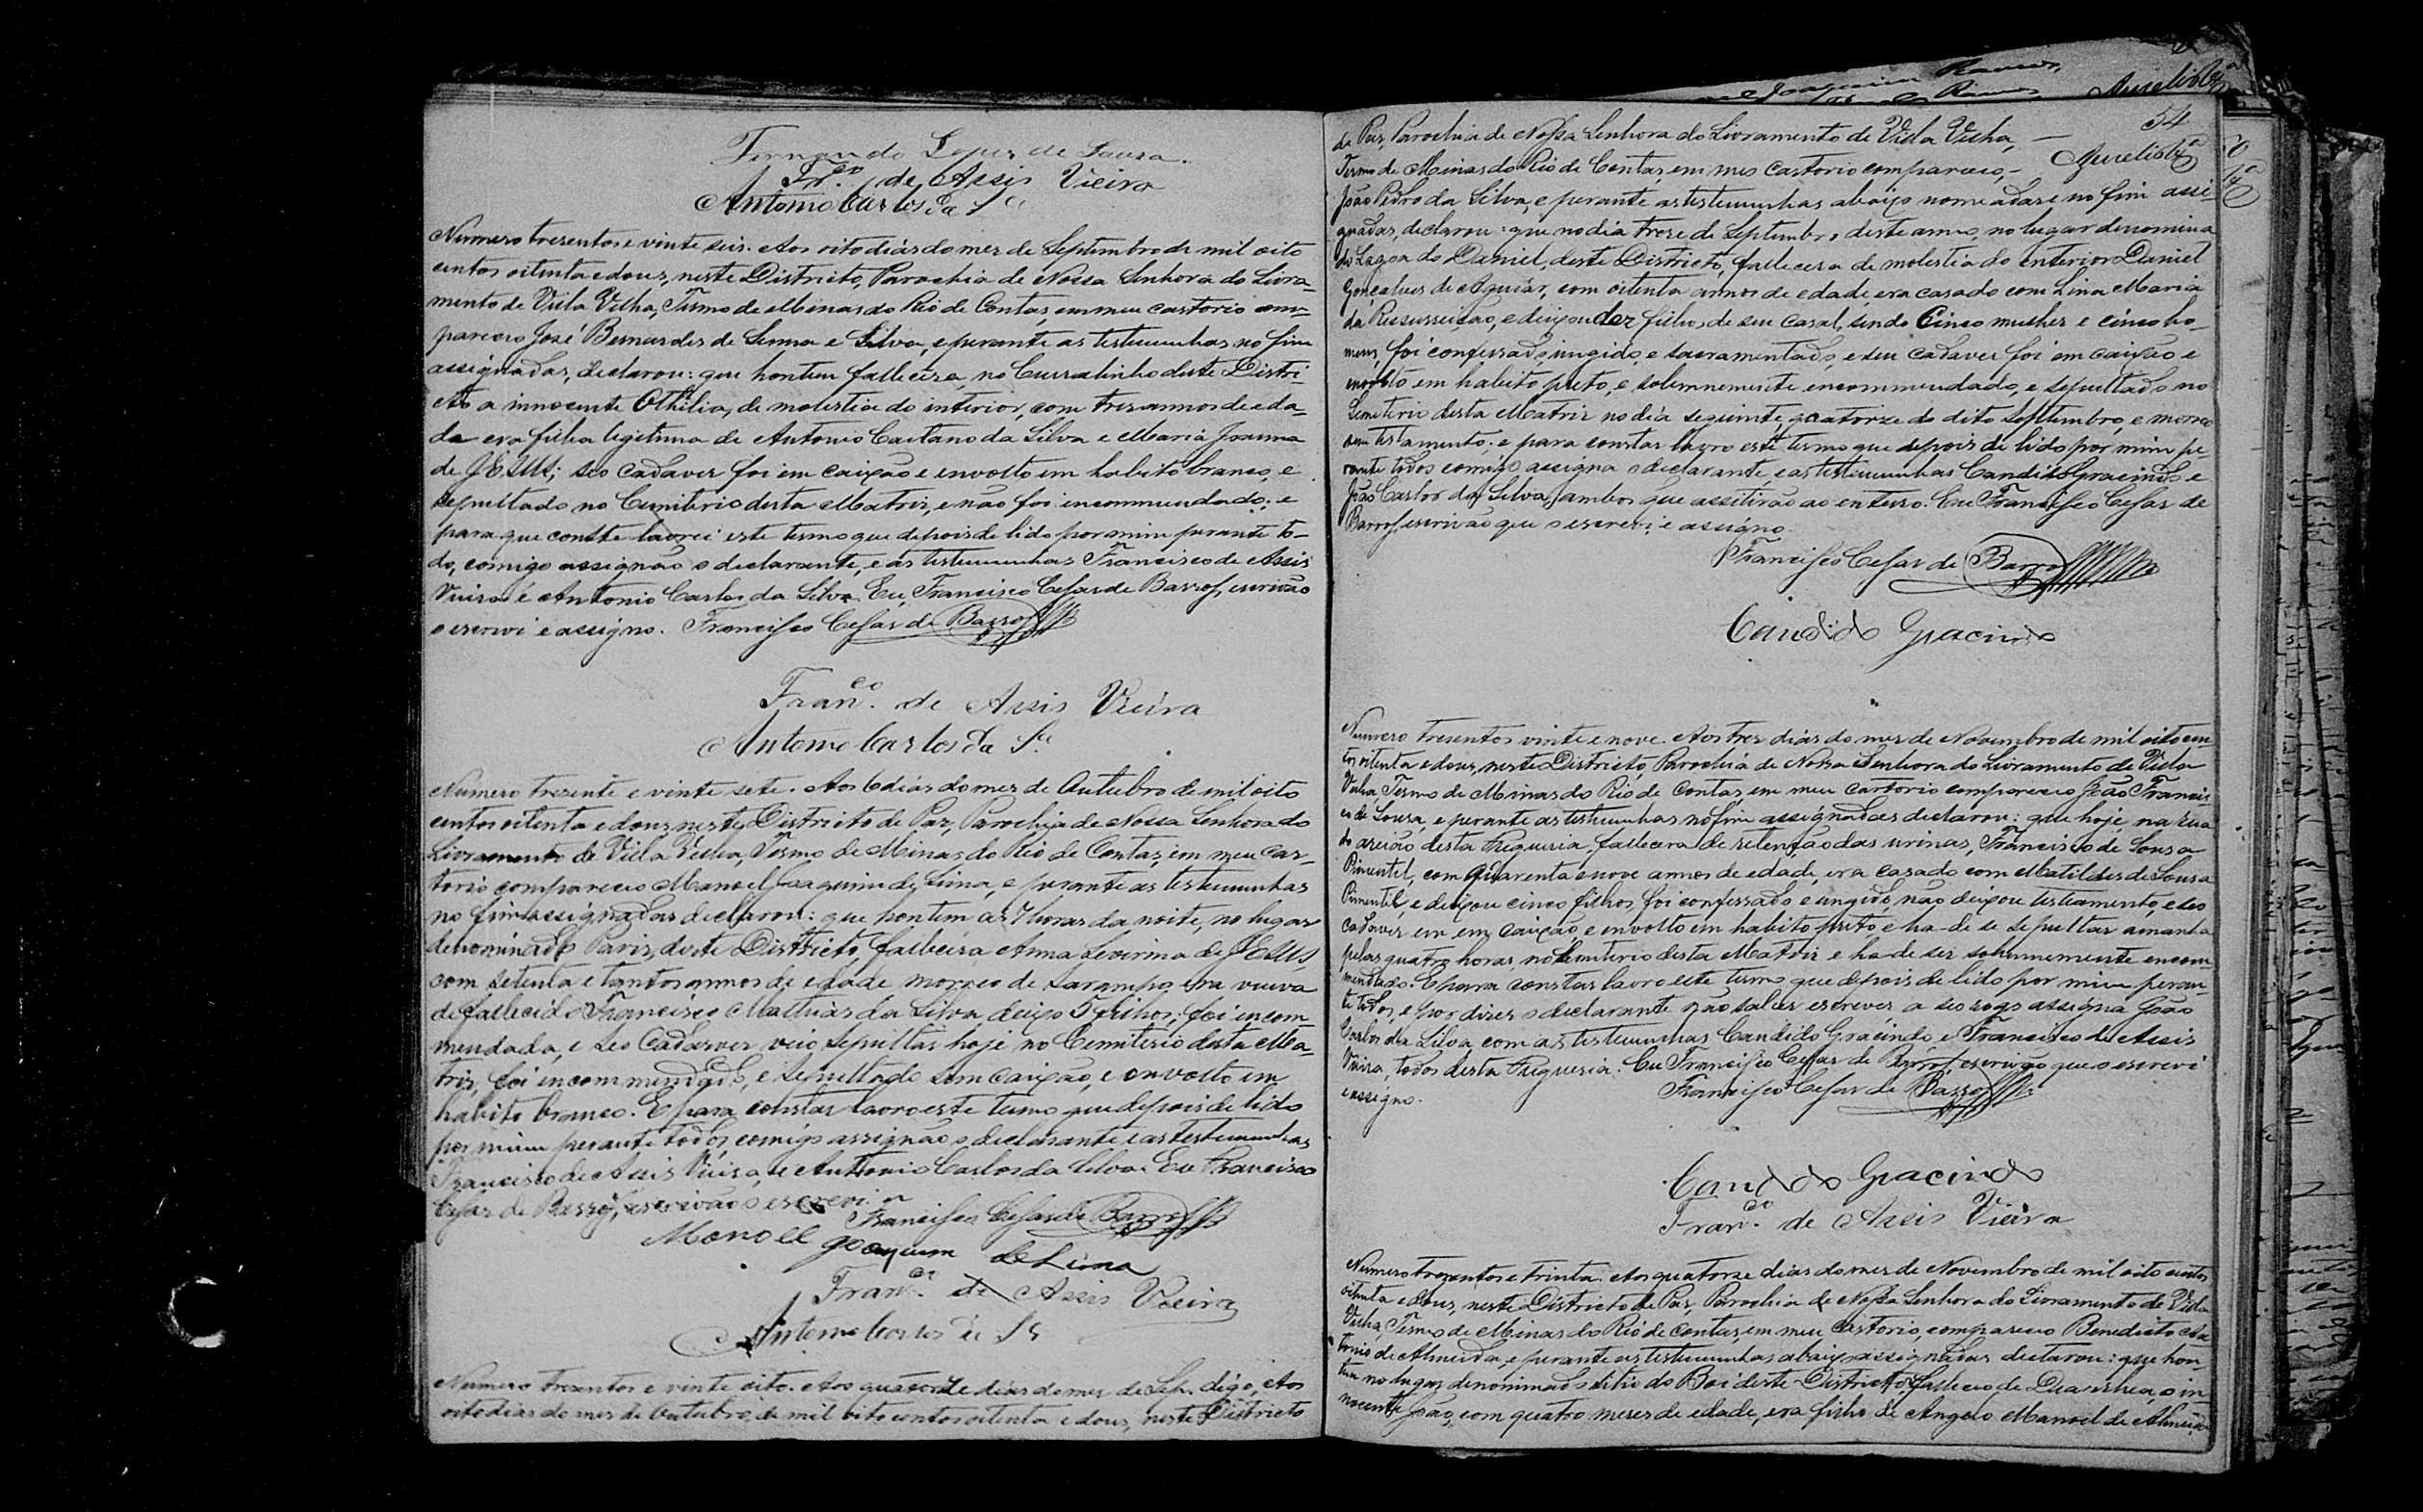 Fernando Lopes de Souza.
Fr.co de Assis Vieira
Antonio Carlos da S.a
Numero tresentos e vinte seis. Aos oito dias do mes de Septembro de mil oito
centos oitenta e dous, neste Districto, Parochia de Nossa Senhora do Livra-
mento de Villa Velha, Termo de Minas do Rio de Contas, em meu cartorio com-
pareceo José Bernardes de Senna e Silva, e perante as testemunhas no fim
assignadas, declarou: que hontem fallecera, no Curralinho deste Distri-
cto a innocente Othilia, de molestia do interior, com tres annos de eda-
de era filha legitima de Antonio Caetano da Silva e Maria Joanna
de JESUS; seo cadaver foi em caixão e envolto em habito branco, e
sepultado no Cemiterio desta Matriz, e não foi encommendado; e
para que conste lavrei este termo que depois de lido por mim perante to-
do, comigo assignão o declarante, e as testemunhas Francisco de Assis
Vieira e Antonio Carlos da Silva. Eu, Francisco Cesar de Barros, escrivão
o escrevi e assigno. Francisco Cesar de Barros
Fran.co de Assis Vieira
Antonio Carlos da S.a
Numero tresente e vinte sete. Aos 6 dias do mes de Outubro de mil oito
centos oitenta e dous, neste Districto de Paz, Parochia de Nossa Senhora do
Livramento de Villa Velha, Termo de Minas do Rio de Contas, em meu car-
torio compareceo Manoel Joaquim de Lima, e perante as testemunhas
no fim assignadas declarou: que hontem as 7 horas da noite, no lugar
denominado Pariz, deste Districto, fallecera Anna Severina de JESUS,
com setenta e tantos annos de edade morreo de sarampo, era viuva
de fallecido Francisco Mathias da Silva, deixo 5 filhos, foi incom
mendada, e seo Cadarver veio sepultar hoje no Cemiterio desta Ma-
triz, foi incommendado, e sepultado sem caixão, e envolto em
habito branco. E para constar lavro este termo que depois de lido
por mim perante todos, comigo assignão o declarante e as testemunhas
Francisco de Assis Vieira, e Antonio Carlos da Silva. Eu Francisco
Cesar de Barros, escrivão o escrevi.
Francisco Cesar de Barros
Manoel Joaquim de Lima
Fran.co de Assis Vieira
Antonio Carlos da S.a
Numero tresentos e vinte oito. Aos quatorze dias do mes de Sep. digo, Aos
oito dias do mes de Outubro, de mil oito centos oitenta e dous, neste Districto
54
de Paz, Parochia de Nossa Senhora do Livramento de Villa Velha,
Termo de Minas do Rio de Contas, em meo Cartorio compareceo,
João Pedro da Silva, e perante as testemunhas abaixo nomeadas e no fim assi-
gnadas, declarou: que no dia treze de Septembro deste anno, no lugar denomina
do Lagoa do Daniel, deste Districto, fallecera de molestia do enterior Daniel
Gonçalves de Aguiar, com oitenta annos de edade, era casado com Lina Maria
da Ressurreição, e deixou dez filhos, de seu casal, sendo Cinco mulher e cinco ho-
mens, foi confessado, ungido, e sacramentado, e seu cadaver foi em caixão e
envolto em habito preto, e solemnemente encommendado, e sepultado no
Cemiterio desta Matriz no dia seguinte, quatorze do dito Septtembro, e morreo
sem testamento; e para constar lavro este termo que depois de lido por mim pe-
rante todos comigo assigna o declarante, e as testemunhas Candido Gracindo e
João Carlos da Silva, ambos que assitirão ao enterro. Eu Francisco Cesar de
Barros, escrivão que o escrevi e assigno.
Francisco Cesar de Barros
Candido Gracindo
Numero tresentos vinte e nove. Aos tres dias do mes de Novembro de mil oito cen-
tos oitenta e dous, neste Districto, Parochia de Nossa Senhora do Livramento de Villa
Velha Termo de Minas do Rio de Contas, em meu cartorio compareceo João Francis-
co de Sousa, e perante as testemunhas no fim assignadas declarou: que hoje, na rua
do areião desta Freguesia, fallecera de retenção das urinas, Francisco de Sousa
Pimentel, com quarenta e nove annos de edade, era casado com Matildes de Sousa
Pimentel, e deixou cinco filhos, foi confessado e ungido, não deixou testamento, e seo
cadaver em em caixão e envolto em habito preto e ha-de se sepultar amanhã
pelas quatro horas, no Cemiterio desta Matriz e ha de ser solemnemente encom-
mendado. E para constar lavro este termo que depois de lido por mim peran-
te todos, e por dizer o declarante não saber escrever a seo rogo assigna João
Carlos da Silva com as testemunhas Candido Gracindo e Francisco de Assis
Vieira, todos desta Freguesia. Eu Francisco Cesar de Barros, escrivão que o escrevi
e assigno.
Francisco Cesar de Barros
Candido Gracindo
Fran.co de Assis Vieira
Numero tresentos e trinta. Aos quatorze dias do mes de Novembro de mil oito centos
oitenta e dous, neste Districto de Paz, Parochia de Nossa Senhora do Livramento de Villa
Velha, Termo de Minas do Rio de Contas, em meu Cartorio, compareceo Benedicto An-
tonio de Almeida, e perante as testemunhas abaixo assignadas declarou: que hon-
tem no lugar denominado sitio do Boi deste Districto, falleceo de Diarrhea, o in-
nocente João, com quatro meses de edade, era filho de Angelo Manoel de Almeida